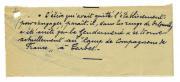 " L'élève qui avait quitté l'établissement
pour s'engager, paraît-il, dans les rangs de la
a été arrêté par la Gendarmerie et se trouve
actuellement au Camp de Compagnons de
France, à Tarbes.